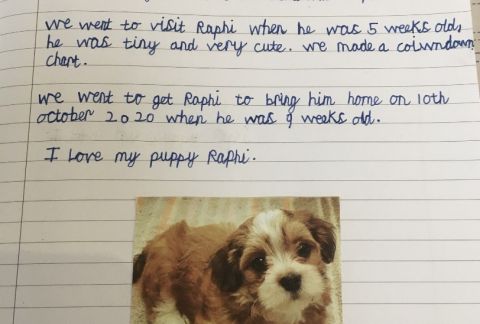 we went to visit Raphi when he was 5 weeks old,
he was tiny and very cute. we made a coiwndown
chart.
we went to get Raphi to bring him home on 10th
october 2020 when he was 9 weeks old.
I Love my puppy Raphi.